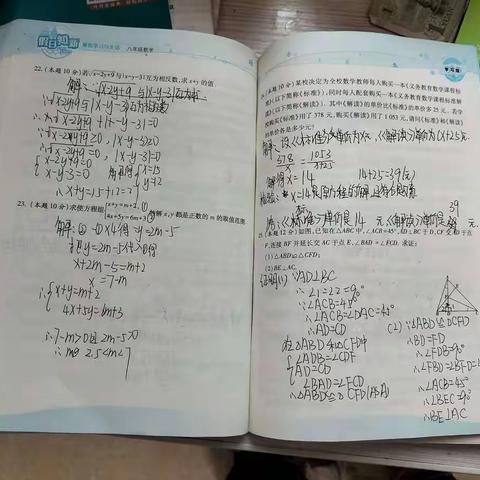 假日知新
暑假学习与生活 八年级数学
22.(本题10分)若√x-2y+9与|x-y-3|互为相反数,求x+y的值.
解:∵√x-2y+9与|x-y-3|互为相反数
∴√x-2y+9+|x-y-3|=0
∵√x-2y+9≥0,|x-y-3|≥0
∴√x-2y+9=0,|x-y-3|=0
x-2y+9=0
x-y-3=0
x=15
y=12
∴x+y=15+12=27
23.(本题10分)求使方程组{x+y=m+2,①
4x+5y=6m+3 的解x,y都是正数的m的取值范围.
解:②-①×4得 y=2m-5
把y=2m-5代入①得
x+2m-5=m+2
x=7-m
∴{x+y=m+2
4x+5y=6m+3
∴7-m>0且2m-5>0
2.5<m<7
24.(本题10分)某校决定为全校数学教师每人购买一本《义务教育数学课程标准》(以下简称《标准》),同时每人配套购买一本《义务教育数学课程标准解读》(以下简称《解读》).其中《解读》的单价比《标准》的单价多25元.若学校购买《标准》用了378元,购买《解读》用了1053元,请问《标准》和《解读》的单价各是多少元?
解:设《标准》的单价为x元,《解读》的单价为(x+25)元
378/x=1053/x+25
解得x=14 14+25=39(元)
检验:x=14是原方程的解
39
答:《标准》的单价是14元,《解读》的单价是 元.
25.(本题12分)如图,已知在△ABC中,∠ACB=45°,AD⊥BC于D,CF交AD于点F,连接BF并延长交AC于点E,∠BAD=∠FCD.求证:
(1)△ABD≌△CFD;
(2)BE⊥AC.
证明:(1)∵AD⊥BC
∴∠1=∠2=90°
∵∠ACB=45°
∴∠ACB=∠DAC=45°
∴AD=CD
在△ABD和△CFD中
∠ADB=∠CDF
AD=CD
∠BAD=∠FCD
∴△ABD≌△CFD(ASA)
(2)∵△ABD≌△CFD
∴BD=FD
∵∠FDB=90°
∴∠FBD=∠BFD=
∵∠ACB=45°
∴∠BEC=90°
∴BE⊥AC